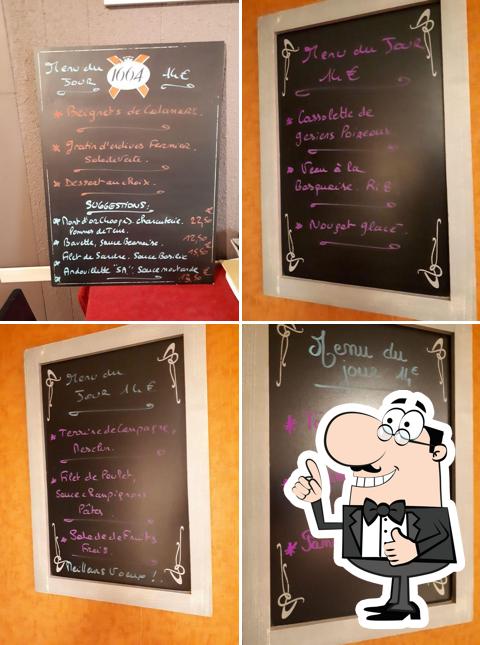 Menu du
Jour 1664 14€
* Beignets de Calamars.
* Gratin d'endives Fermier.
Salade Verte.
* Dessert au choix.
SUGGESTIONS:
* Mont d'or Choopés, charcuterie. 22,50€
Pommes de Terre.
* Bavette, sauce Bearnaise. 12,50€
* Filet de Sandre. Sauce Basilic 15,50
* Andouillette "5A" Sauce moutarde
13,50 €
Menu du Jour
14€
* Cassolette de
gesiers Poireaux
* Veau à la
Basquaise. Riz
* Nougat glacé.
Menu du
Jour 14€
* Terrine de Campagne,
Mesclun.
* Filet de Poulet,
Sauce champignons
Pâtes
* Salade de Fruits
Frais.
Meilleurs Voeux!
Menu du
jour 14€